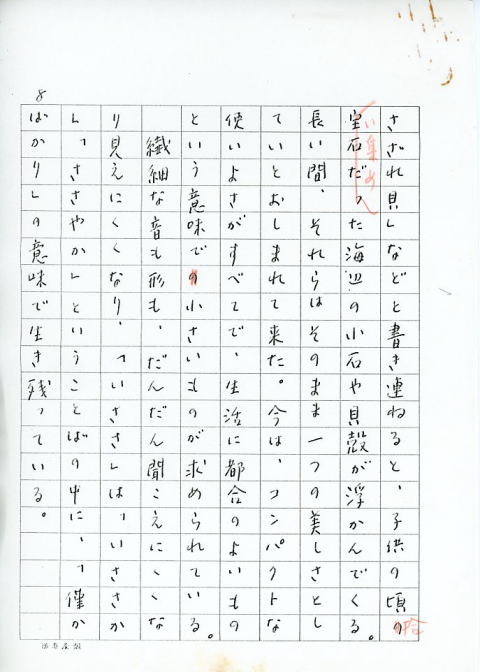 8
さざれ貝」などと書き連ねると、子供の頃の
宝石だった海辺の小石や貝殻が浮かんでくる。
長い間、それらはそのまま一つの美しさとし
ていとおしまれて来た。今は、コンパクトな
使いよさがすべてで、生活に都合のよいもの
という意味での小さいものが求められている。
繊細な音も形も、だんだん聞こえにくくな
り見えにくくなり、「いささ」は「いささか
」、「ささやか」ということばの中に、「僅か
ばかり」の意味で生き残っている。
拾
い集め